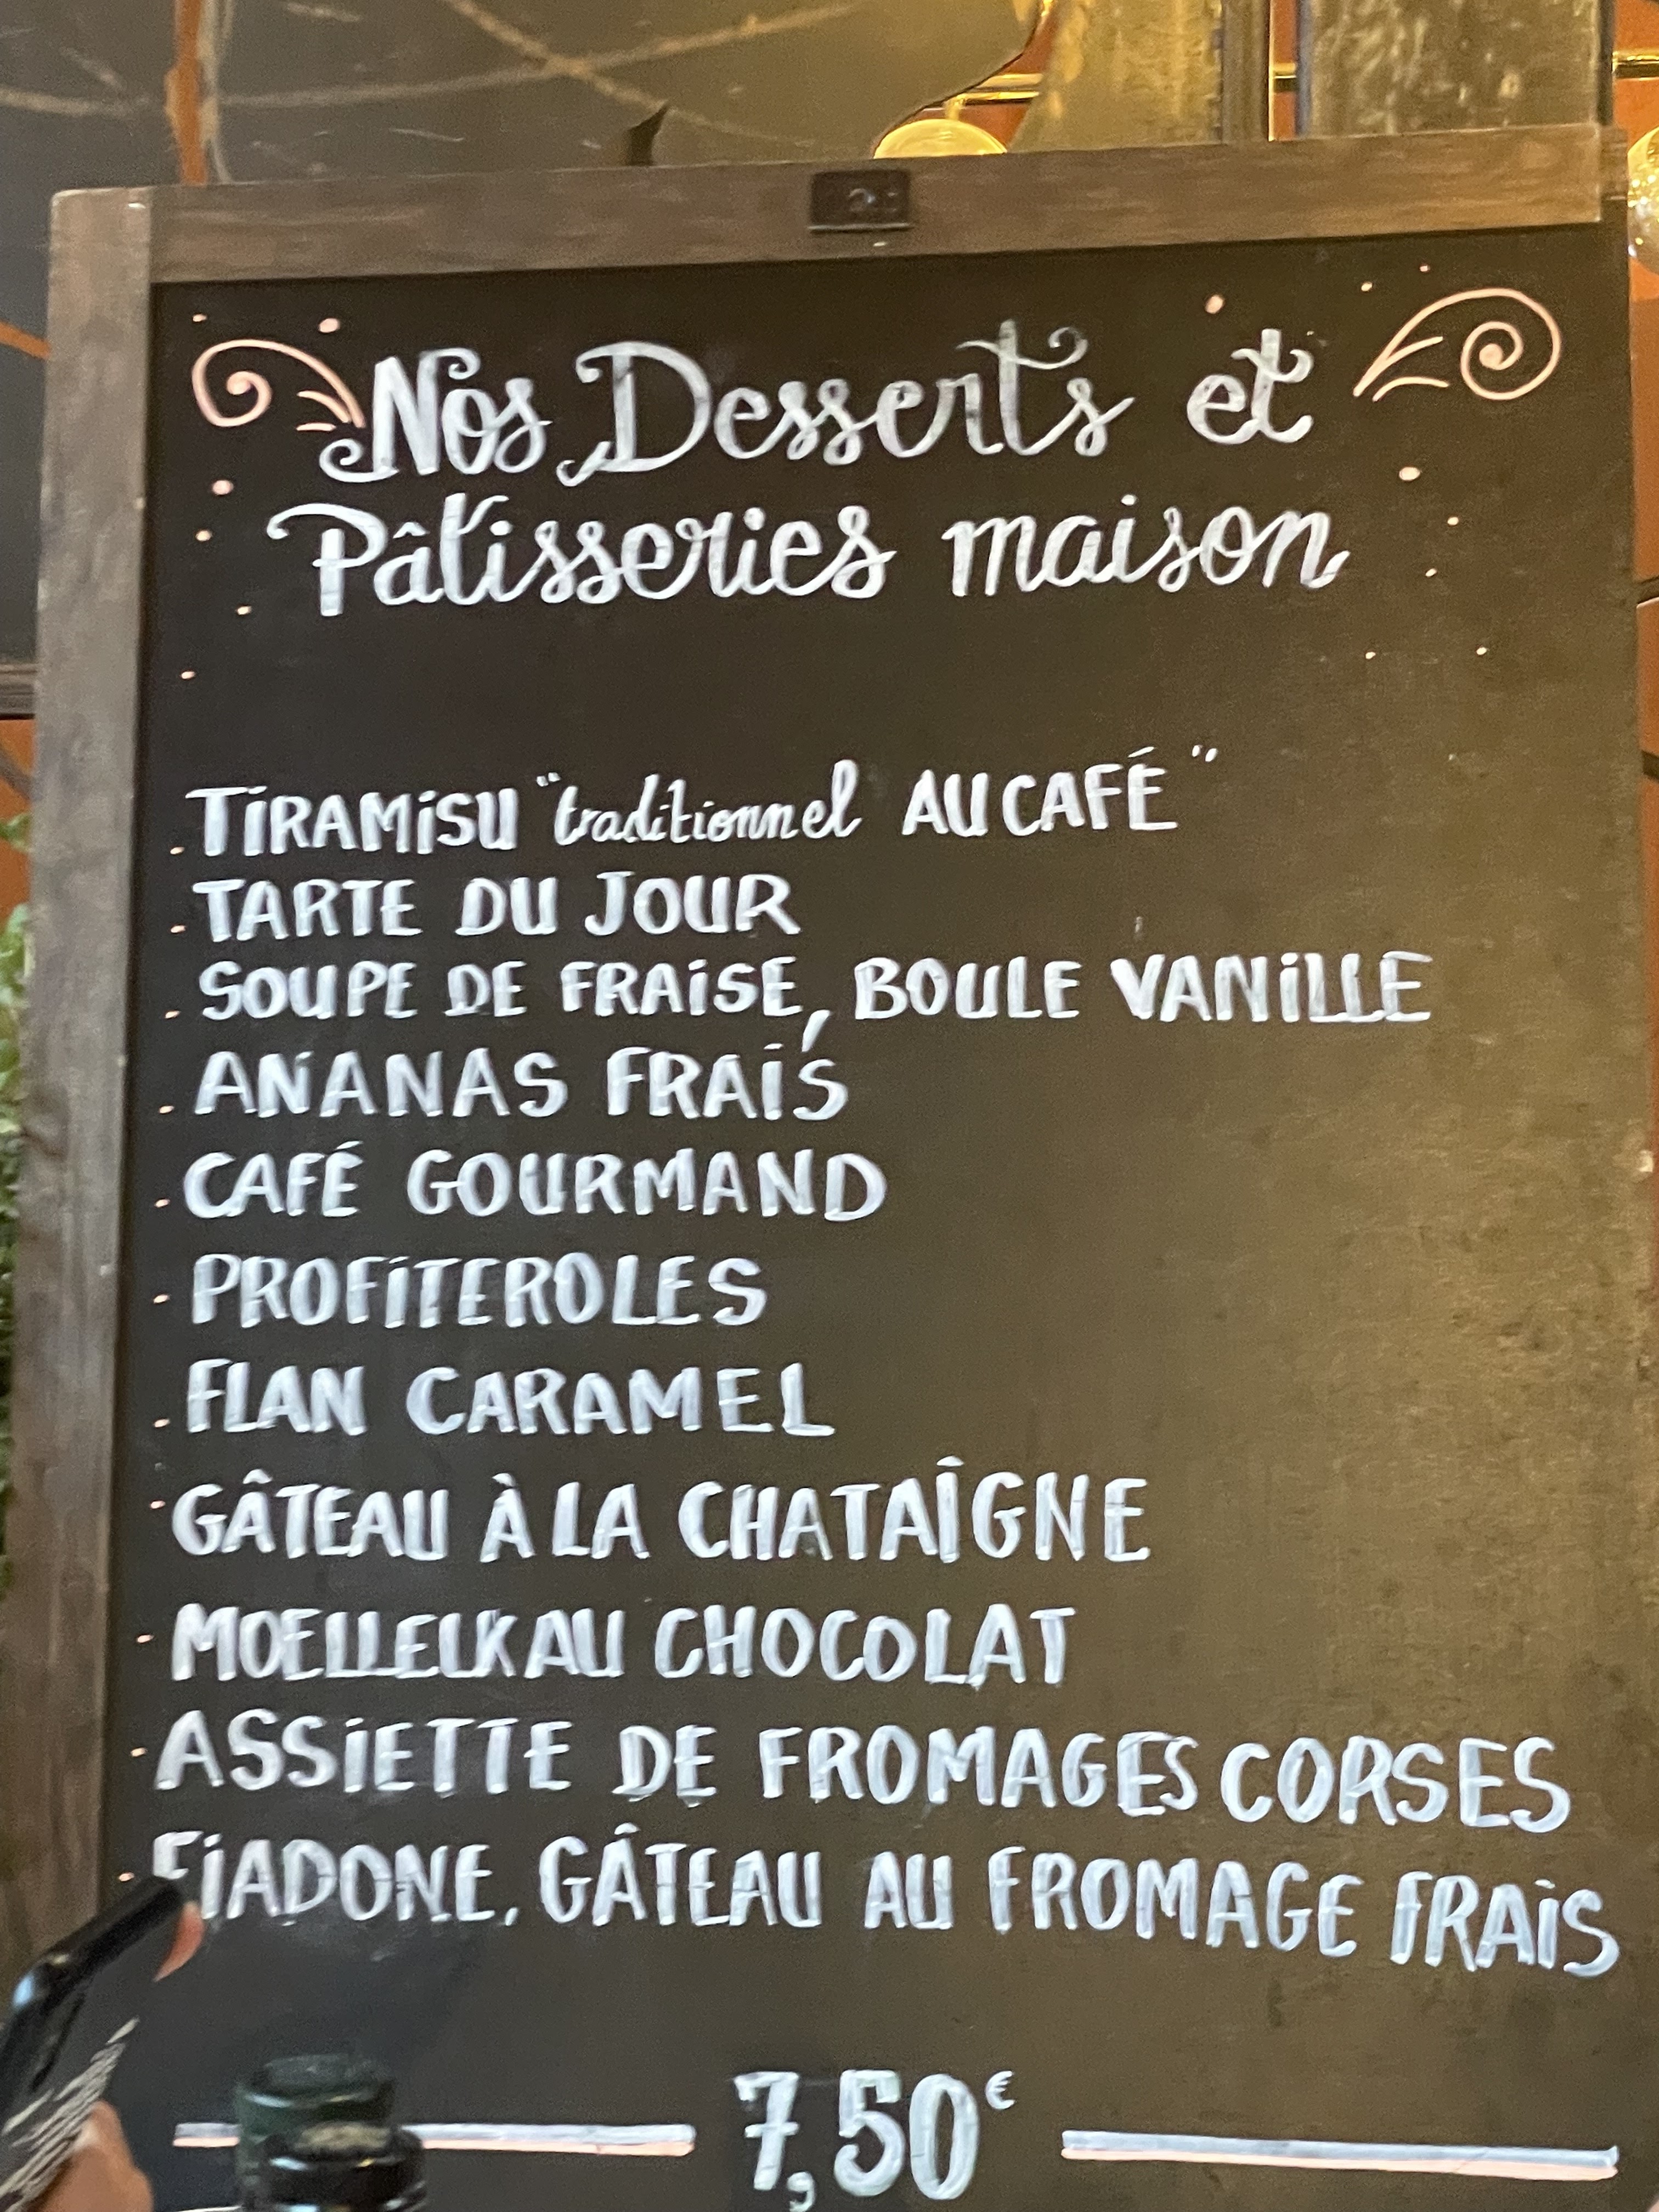 Nos Desserts et
Pâtisseries maison
. TIRAMISU "traditionnel AU CAFÉ"
. TARTE DU JOUR
. SOUPE DE FRAISE, BOULE VANILLE
. ANANAS FRAIS
. CAFÉ GOURMAND
. PROFITEROLES
. FLAN CARAMEL
. GÂTEAU À LA CHATAÎGNE
. MOELLEUX AU CHOCOLAT
. ASSIETTE DE FROMAGES CORSES
. FIADONE, GÂTEAU AU FROMAGE FRAIS
7,50€